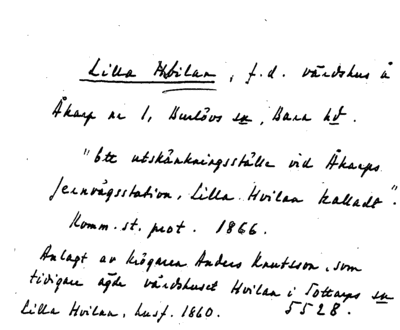 Lilla Hvilan, f.d. värdshus å
Åkarp nr 1, Burlövs sn, Bara hd.
"Ett utskänkningsställe vid Åkarps
jernvägsstation, Lilla Hvilan kalladt".
Komm. st. prot. 1866.
Anlagt av krögaren Anders Knutsson, som
tidigare ägde värdshuset Hvilan i Tottarps sn
Lilla Hvilan, husf. 1860. 5528.